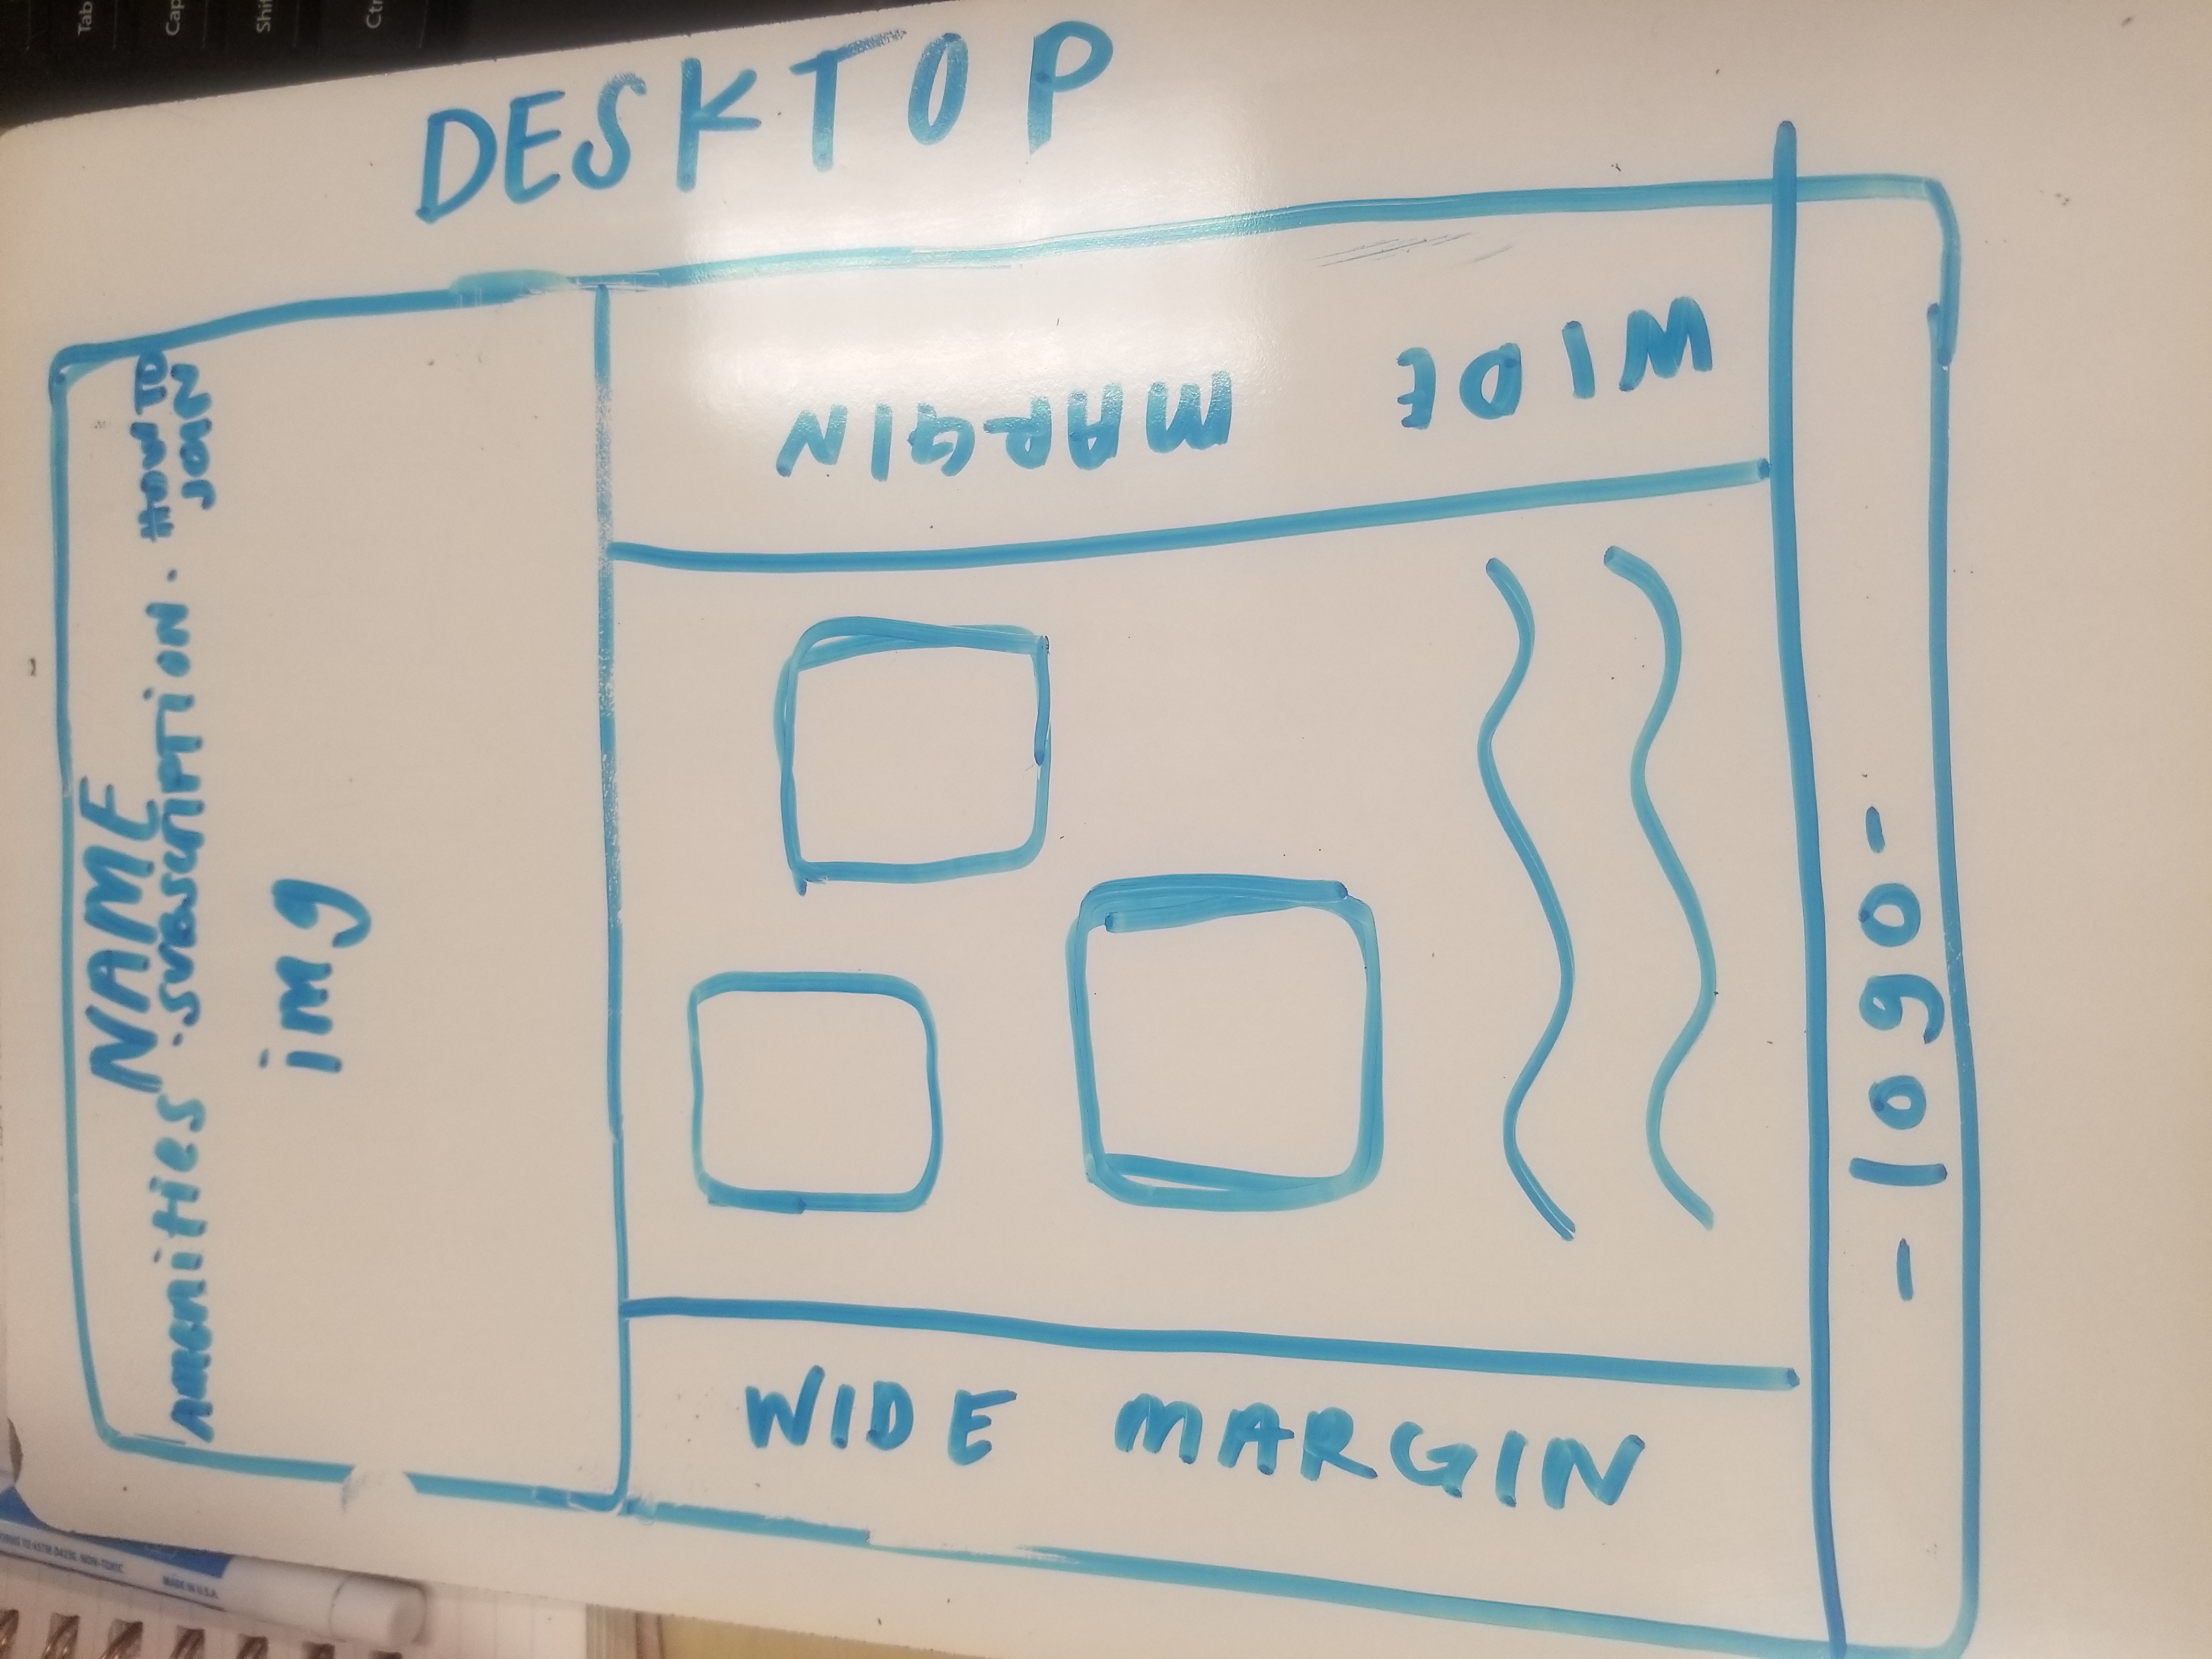 NAME
Amenities · SUBSCRIPTION · HOW TO
JOIN
img
WIDE MARGIN
WIDE MARGIN
DESKTOP
- logo -
Tab
Cap
Shif
Ctr